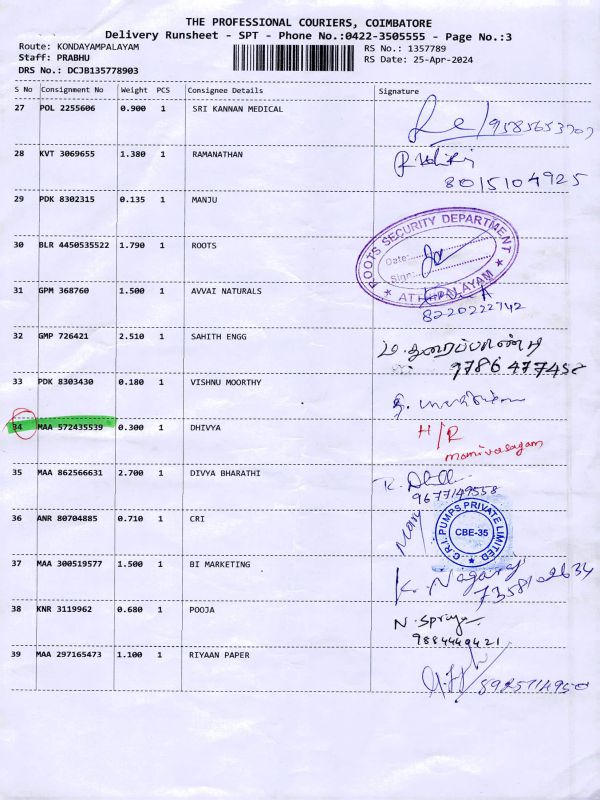 THE PROFESSIONAL COURIERS, COIMBATORE
Delivery Runsheet - SPT - Phone No.:0422-3505555 - Page No.:3
Route: KONDAYAMPALAYAM
RS No.: 1357789
Staff: PRABHU
RS Date: 25-Apr-2024
DRS No.: DCJB135778903
S No Consignment No Weight PCS Consignee Details Signature
27 POL 2255606 0.900 1 SRI KANNAN MEDICAL
28 KVT 3069655 1.380 1 RAMANATHAN
8015104925
29 PDK 8302315 0.135 1 MANJU
ROOTS SECURITY DEPARTMENT
Date:
Sign:
30 BLR 4450535522 1.790 1 ROOTS
31 GPM 368760 1.500 1 AVVAI NATURALS
8220222742
32 GMP 726421 2.510 1 SAHITH ENGG
9786477458
33 PDK 8303430 0.180 1 VISHNU MOORTHY
34 MAA 572435539 0.300 1 DHIVYA H/R
manivasagam
35 MAA 862566631 2.700 1 DIVYA BHARATHI
9677149558
36 ANR 80704885 0.710 1 CRI
C.R.I. PUMPS PRIVATE LIMITED
CBE-35
37 MAA 300519577 1.500 1 BI MARKETING K. Nagaraj
38 KNR 3119962 0.680 1 POOJA
9884440421
39 MAA 297165473 1.100 1 RIYAAN PAPER
8925714950